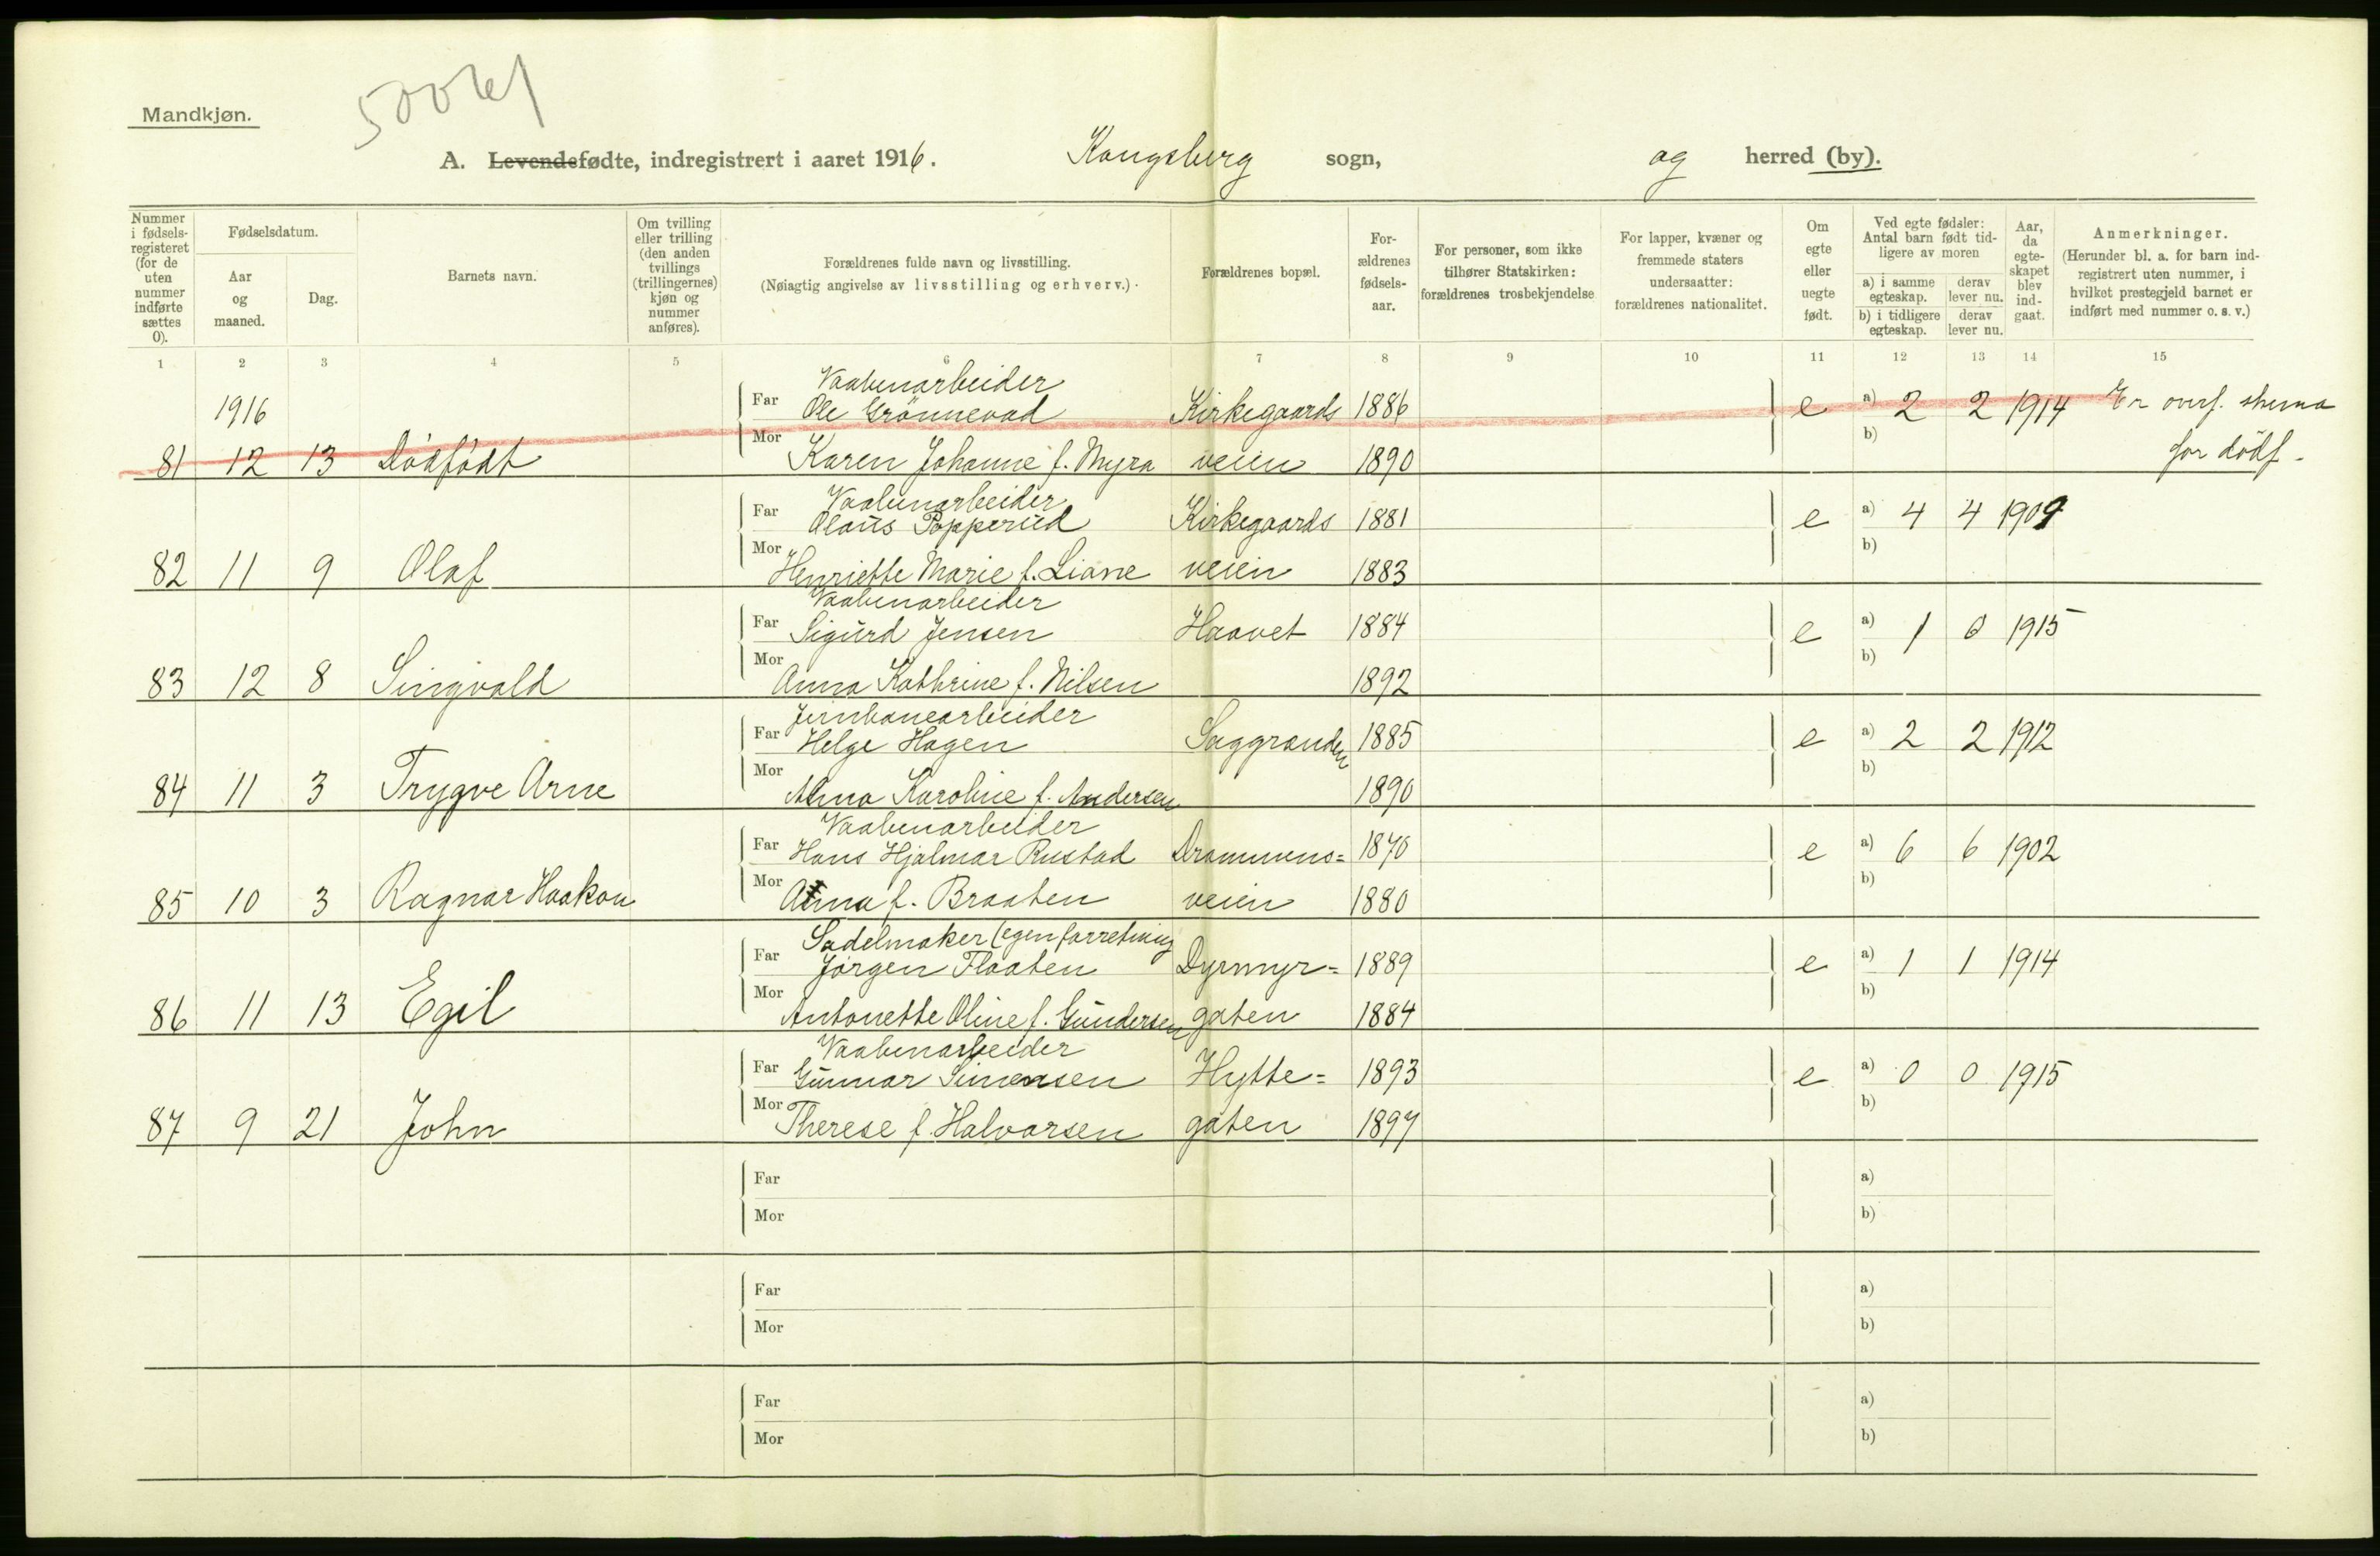 Mandkjøn.
A. Levendefødte, indregistrert i aaret 1916. Kongsberg sogn, og herred (by).
Nummer i fødsels-registeret (for de uten nummer indførte sættes 0).
Fødselsdatum.
Aar og maaned.
Dag.
Barnets navn.
Om tvilling eller trilling (den anden tvillings (trillingernes) kjøn og nummer anføres).
Forældrenes fulde navn og livsstilling.
(Nøiagtig angivelse av livsstilling og erhverv.)
Forældrenes bopæl.
For-ældrenes fødsels-aar.
For personer, som ikke tilhører Statskirken: forældrenes trosbekjendelse
For lapper, kvæner og fremmede staters undersaatter: forældrenes nationalitet.
Om egte eller uegte født.
Ved egte fødsler: Antal barn født tid-ligere av moren
a) i samme egteskap.
derav lever nu.
b) i tidligere egteskap.
derav lever nu.
Aar, da egte-skapet blev ind-gaat.
Anmerkninger.
(Herunder bl. a. for barn ind-registrert uten nummer, i hvilket prestegjeld barnet er indført med nummer o. s. v.)
1 2 3 4 5 6 7 8 9 10 11 12 13 14 15
Vaabenarbeider
1916 Far Ole Grönnevad Kirkegaards 1886 e a) 2 2 1914 Er overf. skema
81 12 13 Dødfødt Mor Karen Johanne f. Myra veien 1890 b) for dödf.
Vaabenarbeider
Far Olaus Popperud Kirkegaards 1881 e a) 4 4 1909
82 11 9 Olaf Mor Henriette Marie f. Liane veien 1883 b)
Vaabenarbeider
Far Sigurd Jensen Haavet 1884 e a) 1 0 1915
83 12 8 Singvald Mor Anna Kathrine f. Nilsen 1892 b)
Jernbanearbeider
Far Helge Hagen Saggranden 1885 e a) 2 2 1912
84 11 3 Trygve Arne Mor Alma Karoline f. Andersen 1890 b)
Vaabenarbeider
Far Hans Hjalmar Rustad Drammens= 1870 e a) 6 6 1902
85 10 3 Ragnar Haakon Mor Anna f. Braaten veien 1880 b)
Sadelmaker (egen forretning
Far Jørgen Flaaten Dyrmyr= 1889 e a) 1 1 1914
86 11 13 Egil Mor Antonette Oline f. Gundersen gaten 1884 b)
Vaabenarbeider
Far Gunnar Simensen Hytte= 1893 e a) 0 0 1915
87 9 21 John Mor Therese f. Halvorsen gaten 1897 b)
Far a)
Mor b)
Far a)
Mor b)
Far a)
Mor b)